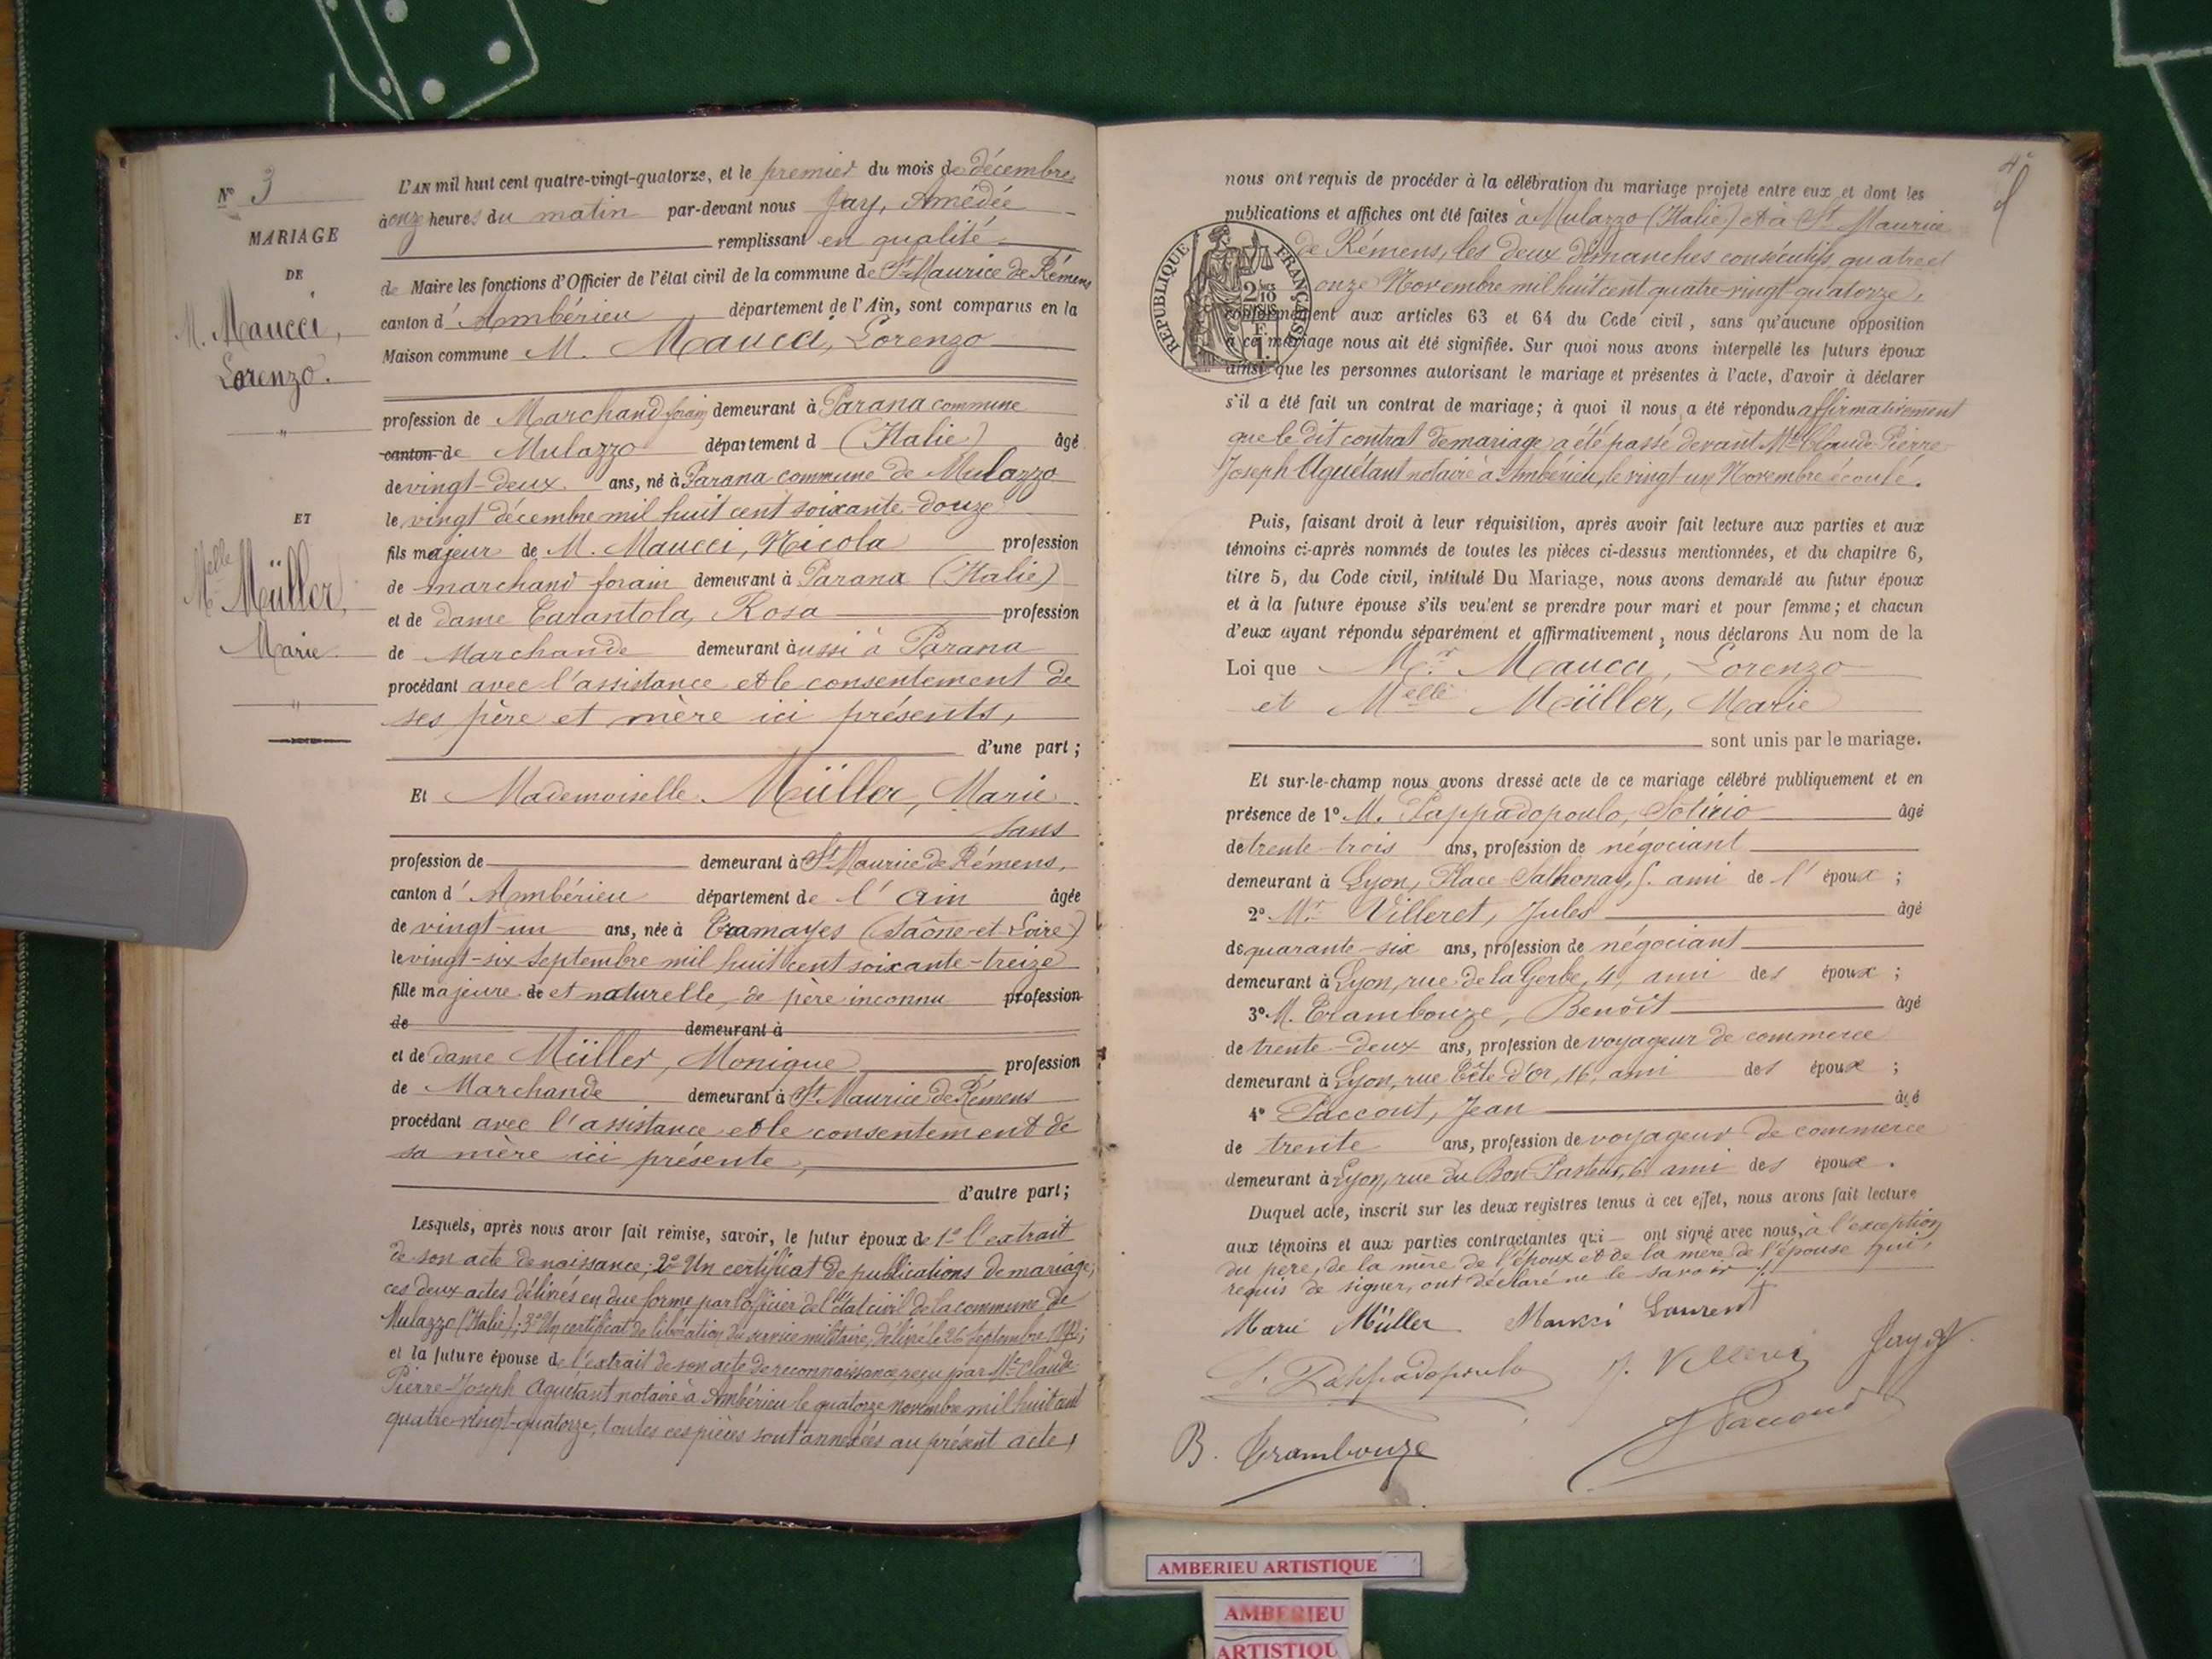 N° 3
MARIAGE
DE
M. Maucci,
Lorenzo.
ET
Melle Müller,
Marie
L'AN mil huit cent quatre-vingt-quatorze, et le premier du mois de décembre
à onze heures du matin par-devant nous Jay, Amédée
remplissant en qualité
de Maire les fonctions d'Officier de l'état civil de la commune de St Maurice de Rémens
canton d' Ambérieu département de l'Ain, sont comparus en la
Maison commune M. Maucci, Lorenzo
profession de Marchand forain demeurant à Parana commune
canton de Mulazzo département d (Italie) âgé
de vingt-deux ans, né à Parana commune de Mulazzo
le vingt décembre mil huit cent soixante-douze
fils majeur de M. Maucci, Nicola profession
de marchand forain demeurant à Parana (Italie)
et de dame Tarantola, Rosa profession
de Marchande demeurant aussi à Parana
procédant avec l'assistance et le consentement de
ses père et mère ici présents,
d'une part ;
Et Mademoiselle Müller, Marie
sans
profession de demeurant à St Maurice de Rémens,
canton d' Ambérieu département de l' Ain âgée
de vingt-un ans, née à Tramayes (Saône-et-Loire)
le vingt-six Septembre mil huit cent soixante-treize
fille majeure de et naturelle, de père inconnu profession
de demeurant à
et de dame Müller, Monique profession
de Marchande demeurant à St Maurice de Rémens
procédant avec l'assistance et le consentement de
sa mère ici présente,
d'autre part ;
Lesquels, après nous avoir fait remise, savoir, le futur époux de 1° l'extrait
de son acte de naissance; 2° Un certificat de publications de mariage;
ces deux actes délivrés en due forme par l'officier de l'état civil de la commune de
Mulazzo (Italie); 3° Un certificat de libération du service militaire, délivré le 26 Septembre
et la future épouse de l'extrait de son acte de reconnaissance, reçu par Me Claude
Pierre-Joseph Aguétant notaire à Ambérieu le quatorze novembre mil huit cent
quatre-vingt-quatorze, toutes ces pièces sont annexées au présent acte,
nous ont requis de procéder à la célébration du mariage projeté entre eux et dont les
publications et affiches ont été faites à Mulazzo (Italie) et à St Maurice
de Rémens, les deux dimanches consécutifs, quatre et
onze Novembre mil huit cent quatre-vingt-quatorze,
conformément aux articles 63 et 64 du Code civil, sans qu'aucune opposition
à ce mariage nous ait été signifiée. Sur quoi nous avons interpellé les futurs époux
ainsi que les personnes autorisant le mariage et présentes à l'acte, d'avoir à déclarer
s'il a été fait un contrat de mariage ; à quoi il nous a été répondu affirmativement
que le dit contrat de mariage a été passé devant Me Claude-Pierre
Joseph Aguétant notaire à Ambérieu, le vingt-un Novembre écoulé.
RÉPUBLIQUE FRANÇAISE
2/10
EN SUS
F.
1.
Puis, faisant droit à leur réquisition, après avoir fait lecture aux parties et aux
témoins ci-après nommés de toutes les pièces ci-dessus mentionnées, et du chapitre 6,
titre 5, du Code civil, intitulé Du Mariage, nous avons demandé au futur époux
et à la future épouse s'ils veulent se prendre pour mari et pour femme ; et chacun
d'eux ayant répondu séparément et affirmativement, nous déclarons Au nom de la
Loi que Mr Maucci, Lorenzo
et Melle Müller, Marie
sont unis par le mariage.
Et sur-le-champ nous avons dressé acte de ce mariage célébré publiquement et en
présence de 1° M. Pappadopoulo, Sotirio âgé
de trente-trois ans, profession de négociant
demeurant à Lyon, Place Sathonay, 5. ami de l' époux ;
2° Mr Villeret, Jules âgé
de quarante-six ans, profession de négociant
demeurant à Lyon, rue de la Gerbe, 4, ami des époux ;
3° M. Trambouze, Benoît âgé
de trente-deux ans, profession de voyageur de commerce
demeurant à Lyon, rue Tête d'Or, 16, ami des époux ;
4° Paccout, Jean âgé
de trente ans, profession de voyageur de commerce
demeurant à Lyon, rue du Bon Pasteur, 6. ami des époux.
Duquel acte, inscrit sur les deux registres tenus à cet effet, nous avons fait lecture
aux témoins et aux parties contractantes qui ont signé avec nous, à l'exception
du père, de la mère de l'époux et de la mère de l'épouse qui,
requis de signer, ont déclaré ne le savoir
Marie Müller Laurent
S. Pappadopoulo Jay A
B. Trambouze
AMBERIEU ARTISTIQUE
AMBERIEU
ARTISTIQU